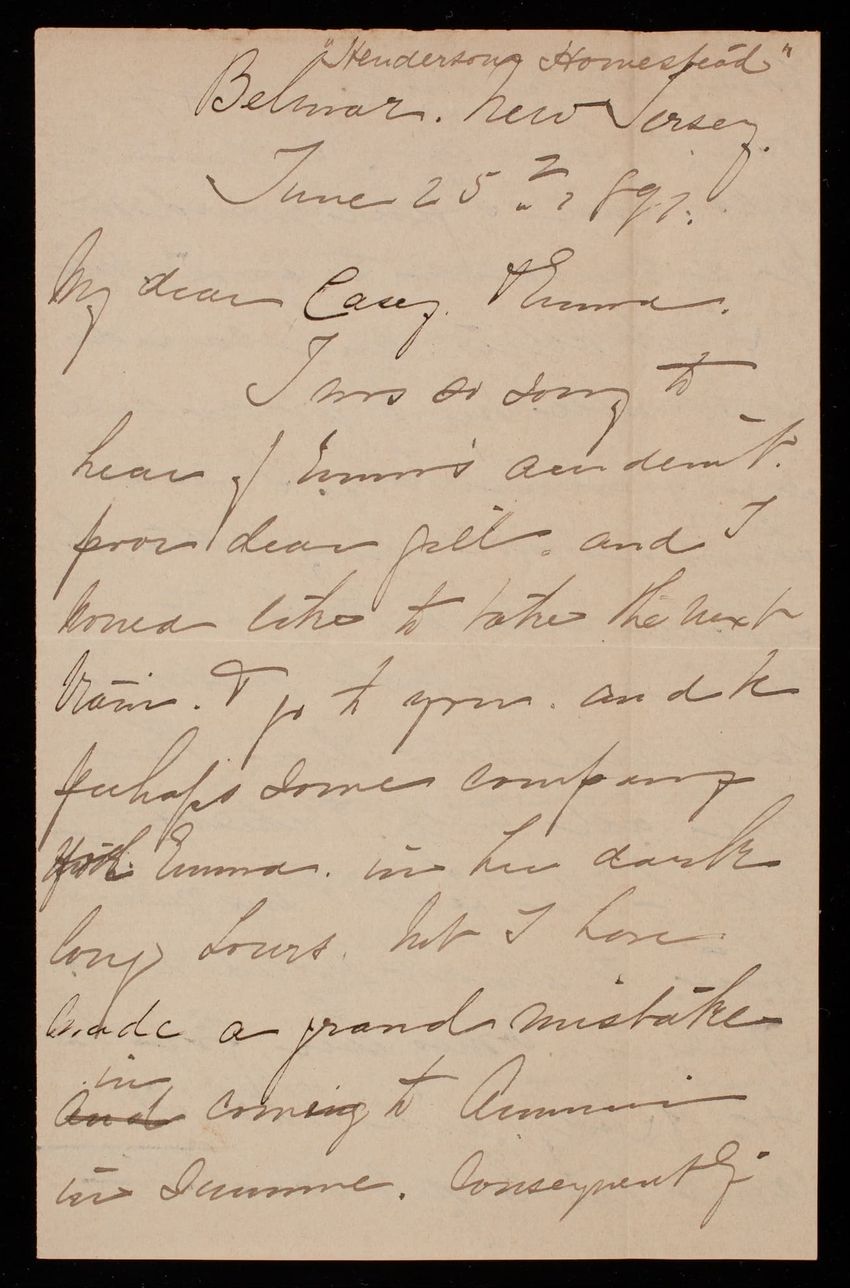 "Henderson Homestead"
Belmar. New Jersey.
June 25th 1891.
My dear Casey. & Emma.
I was so sorry to
hear of Emma's accident.
poor dear girl. and I
would like to take the next
train. & go to you. and be
perhaps some company
Emma. in her dark
long hours. but I have
made a grand mistake
in
and coming to
in summer. Consequently